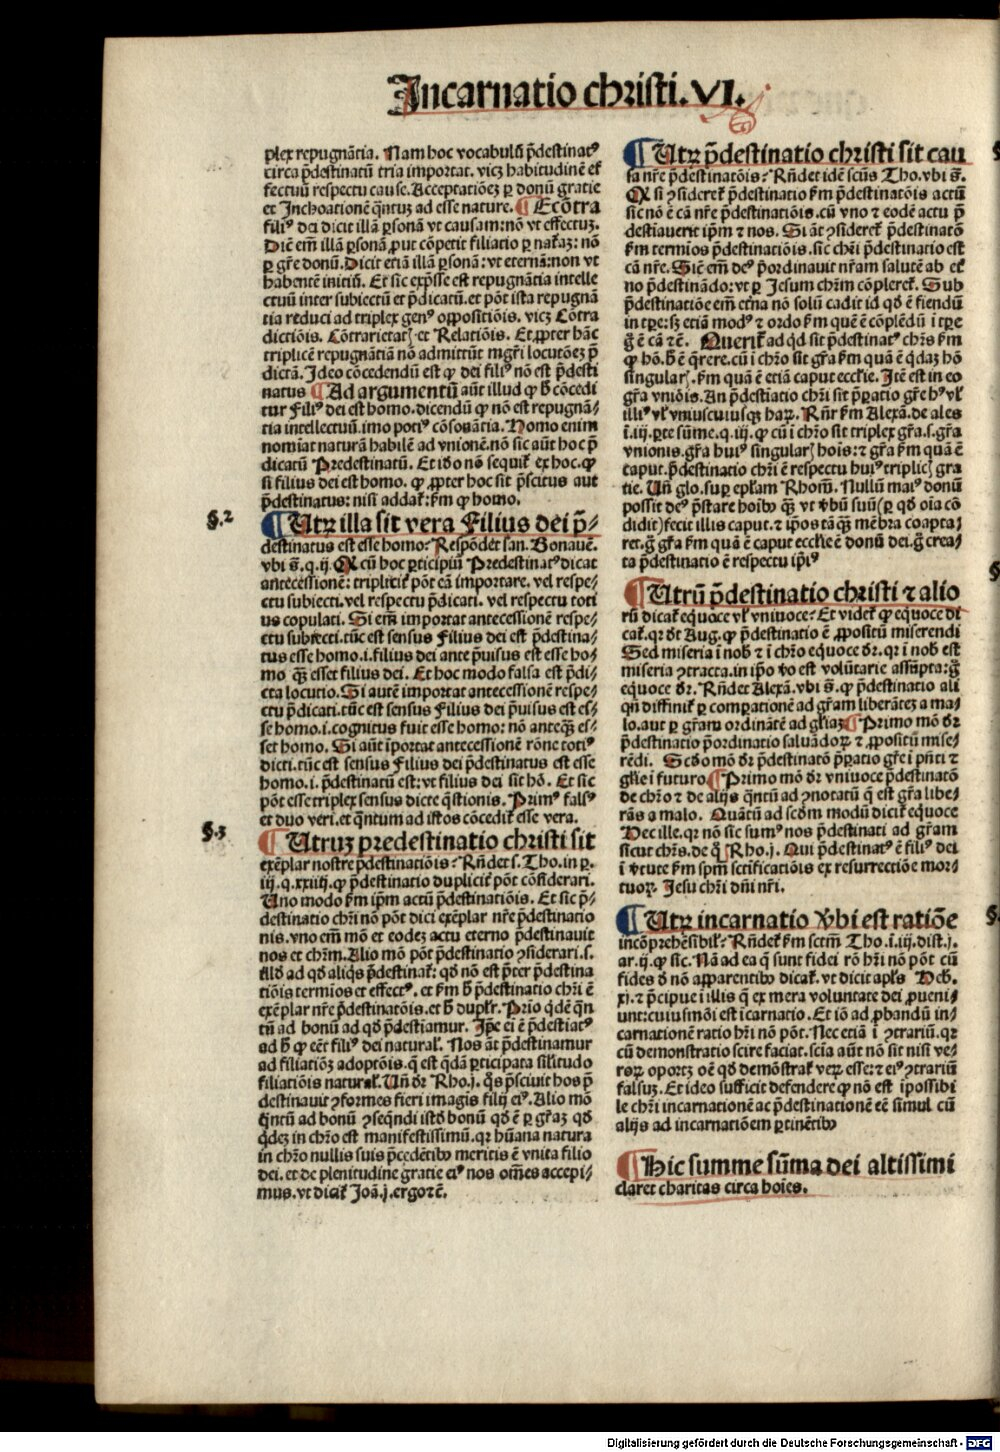 Incarnatio christi. VI.
plex repugnãtia. Nam hoc vocabulũ p̃destinatꝰ
circa p̃destinatũ tria importat. vicꝫ habitudinẽ ef
fectuũ respectu cause. Acceptatiõeꝫ ꝑ donũ gratie
et Inchoationẽ q̃ntuꝫ ad esse nature. ¶ Ecõtra
filiꝰ dei dicit illã ꝑsonã vt causam: nõ vt effectuꝫ.
Diẽ em̃ illã ꝑsonã ꝓut cõpetit filiatio ꝑ nat̃aꝫ: nõ
ꝑ gr̃e donũ. Dicit etiã illã ꝑsonã: vt eternã: non vt
habentẽ initiũ. Et sic exp̃sse est repugnãtia intelle
ctuũ inter subiectũ et p̃dicatũ. et põt ista repugnã
tia reduci ad triplex genꝰ oppositiõis. vicꝫ Cõtra
dictiõis. Cõtrarietatꝭ. et Relatiõis. Et ꝓpter hãc
triplicẽ repugnãtiã nõ admittũt mgr̃i locutõeꝫ p̃
dictã. Ideo cõcedendũ est ꝙ dei filiꝰ nõ est p̃desti
natus ¶ Ad argumentũ aũt illud ꝙ h̃ cõcedi
tur Filiꝰ dei est homo. dicendũ ꝙ nõ est repugnã⸗
tia intellectuũ. imo potiꝰ cõsonãtia. Homo enim
nomĩat naturã habilẽ ad vnionẽ. nõ sic aũt hoc p̃
dicatũ Predestinatũ. Et iõo nõ sequit̃ ex hoc. ꝙ
si filius dei est homo. ꝙ ꝓpter hoc sit p̃scitus aut
p̃destinatus: nisi addat̃: fm̃ ꝙ homo.
§.2
¶ Utꝝ illa sit vera Filius dei p̃⸗
destinatus est esse homo: Respõdet san. Bonauẽ.
vbi s̃. q. ij. Q cũ hoc ꝑticipiũ Predestinatꝰ dicat
antecessionẽ: triplicit̃ põt eã importare. vel respe⸗
ctu subiecti. vel respectu p̃dicati. vel respectu toti
us copulati. Si em̃ importat antecessionẽ respe⸗
ctu subiecti: tũc est sensus Filius dei est p̃destina⸗
tus esse homo. i. filius dei ante p̃uisus est esse ho⸗
mo q̃ꝫ esset filius dei. Et hoc modo falsa est p̃di⸗
cta locutio. Si autẽ importat antecessionẽ respe⸗
ctu p̃dicati. tũc est sensus Filius dei p̃uisus est es⸗
se homo. i. cognitus fuit esse homo: nõ anteq̃ꝫ es⸗
set homo. Si aũt ĩportat antecessionẽ rõne totiꝰ
dicti. tũc est sensus Filius dei p̃destinatus est esse
homo. i. p̃destinatũ est: vt filius dei sit hõ. Et sic
põt esse triplex sensus dicte q̃stionis. Primꝰ falsꝰ
et duo veri. et q̃ntum ad istos cõcedit̃ esse vera.
§.3
¶ Utruꝫ predestinatio christi sit
exẽplar nostre p̃destinatiõis: Rñdet s. Tho. in ꝑ.
iij. q. xxiiij. ꝙ p̃destinatio duplicit̃ põt cõsiderari.
Uno modo fm̃ ip̃m actũ p̃destinatiõis. Et sic p̃⸗
destinatio chr̃i nõ põt dici exẽplar nr̃e p̃destinatio
nis. vno em̃ mõ et eodeꝫ actu eterno p̃destinauit
nos et chr̃m. Alio mõ põt p̃destinatio ꝯsiderari. s.
filõ ad qd aliq̃s p̃destinat̃: qd nõ est p̃ter p̃destina
tiõis termĩos et effectꝰ. et fm̃ h̃ p̃destinatio chr̃i ẽ
exẽplar nr̃e p̃destinatõis. et h̃ duplr̃. Prio q̃dẽ q̃n
tũ ad bonũ ad qd p̃destiamur. Ip̃e ei ẽ p̃destiatꝰ
ad h̃ ꝙ eẽt filiꝰ dei natural̃. Nos ãt p̃destinamur
ad filiatiõꝫ adoptõis. q̃ est q̃dã ꝑticipata silitudo
filiatiõis natural̃. Uñ dr̃ Rho. j. q̃s p̃sciuit hos p̃
destinauit ꝯformes fieri imagis filij eiꝰ. Alio mõ
q̃ntũ ad bonũ ꝯseq̃ndi istõ bonũ qd ẽ ꝑ gr̃aꝫ qd
q̃deꝫ in chr̃o est manifestissimũ. qꝛ hũana natura
in chr̃o nullis suis p̃cedẽtibꝰ meritis ẽ vnita filio
dei. et de plenitudine gratie eiꝰ nos om̃es accepi⸗
mus. vt dicit̃ Joã. j. ergo ꝛc̃.
¶ Utꝝ p̃destinatio christi sit cau
sa nr̃e p̃destinatõis: Rñdet idẽ sctũs Tho. vbi s̃.
Q si ꝯsideret̃ p̃destinatio fm̃ p̃destinatõis actũ
sic nõ ẽ cã nr̃e p̃destinatiõis. cũ vno ⁊ eodẽ actu p̃
destiauerit ip̃m ⁊ nos. Si ãt ꝯsideret̃ p̃destinatõ
fm̃ termĩos p̃destinatiõis. sic chr̃i p̃destinatio est
cã nr̃e. Sic em̃ deꝰ p̃ordinauit nr̃am salutẽ ab et̃
no p̃destinãdo: vt ꝑ Jesum chr̃m cõpleret̃. Sub
p̃destinatiõe em̃ et̃na nõ solũ cadit id qd ẽ fiendũ
in tꝑe: sꝫ etiã modꝰ ⁊ ordo fm̃ quẽ ẽ cõplẽdũ ĩ tꝑe
g̃ ẽ cã ꝛc̃. Querit̃ ad qd sit p̃destinatꝰ chr̃s fm̃
ꝙ hõ. h̃ ẽ q̃rere. cũ ĩ chr̃o sit gr̃a fm̃ quã ẽ q̃daꝫ hõ
singularꝭ. fm̃ quã ẽ etiã caput ecclie. Itẽ est in eo
gr̃a vniõis. An p̃destĩatio chr̃i sit p̃ꝑatio gr̃e hꝰ vl̃
illiꝰ vl̃ vniuscuiusqꝫ haꝝ. Rñr fm̃ Alexã. de ales
ĩ. iij. ꝑte sũme. q. iij. ꝙ cũ ĩ chr̃o sit triplex gr̃a. s. gr̃a
vnionis. gr̃a huiꝰ singularꝭ hoĩs: ⁊ gr̃a fm̃ quã ẽ
caput. p̃destinatio chr̃i ẽ respectu huiꝰ triplicꝭ gra
tie. Uñ glo. suꝑ ep̃lam Rhom̃. Nullũ maiꝰ donũ
possit deꝰ p̃stare hoĩbꝰ q̃ꝫ vt ỽbũ suũ (ꝑ qd oĩa cõ
didit) fecit illis caput. ⁊ ip̃os tãq̃ꝫ mẽbra coapta⸗
ret. g̃ gr̃a fm̃ quã ẽ caput ecclie ẽ donũ dei. g̃ crea⸗
ta p̃destinatio ẽ respectu ip̃iꝰ
¶ Utrũ p̃destinatio christi ⁊ alio
rũ dicat̃ equoce vl̃ vniuoce: Et videt̃ ꝙ equoce di
cat̃. qꝛ dt Aug. ꝙ p̃destinatio ẽ ꝓpositũ miserendi
Sed miseria ĩ nob̃ ⁊ ĩ chr̃o equoce dr̃. qꝛ ĩ nob̃ est
miseria ꝯtracta. in ip̃o ỽo est volũtarie assũpta: g̃
equoce dr̃. Rñdet Alexã. vbi s̃. ꝙ p̃destinatio ali
qñ diffinit̃ ꝑ comꝑationẽ ad gr̃am liberãteꝫ a ma⸗
lo. aut ꝑ gr̃am ordinãtẽ ad gl̃iaꝫ ¶ Primo mõ dr̃
p̃destinatio p̃ordinatio saluãdoꝝ ⁊ ꝓpositũ mise⸗
rẽdi. Scdo mõ dr̃ p̃destinatõ p̃ꝑatio gr̃e ĩ pñti ⁊
gl̃ie ĩ futuro ¶ Primo mõ dr̃ vniuoce p̃destinatõ
de chr̃o ⁊ de alijs q̃ntũ ad ꝯnotatũ q̃ est gr̃a libe⸗
rãs a malo. Quãtũ ad scdm modũ dicit̃ equoce
Hec ille. qꝛ nõ sic sumꝰ nos p̃destinati ad gr̃am
sicut chr̃s. de q̃ Rho. j. Qui p̃destinatꝰ ẽ filiꝰ dei
ĩ ỽtute fm̃ sp̃m sctificatiõis ex resurrectiõe mor⸗
tuoꝝ. Jesu chr̃i dñi nr̃i.
¶ Utꝝ incarnatio ỽbi est ratiõe
incõprehẽsibil̃: Rñdet̃ fm̃ sctm̃ Tho. ĩ. iij. dist. j.
ar. ij. ꝙ sic. Nã ad ea q̃ sunt fidei rõ hr̃i nõ põt cũ
fides d̃ nõ apparentibꝰ dicat̃. vt dicit apl̃s Heb̃.
xj. ⁊ p̃cipue ĩ illis q̃ ex mera voluntate dei ꝓueni⸗
unt: cuiusmõi est ĩcarnatio. Et iõ ad ꝓbandũ in⸗
carnationẽ ratio hr̃i nõ põt. Nec etiã ĩ ꝯtrariũ. qꝛ
cũ demonstratio scire faciat. scĩa aũt nõ sit nisi ve⸗
roꝝ oportꝫ oẽ qd demõstrat̃ veꝝ esse: ⁊ eiꝰ ꝯtrariũ
falsuꝫ. Et ideo sufficit defendere ꝙ nõ est ĩpossibi
le chr̃i incarnationẽ ac p̃destinationẽ eẽ simul cũ
alijs ad incarnatiõem ꝑtinẽtibꝰ
¶ Hic summe sũma dei altissimi
claret charitas circa hoĩes.
Digitalisierung gefördert durch die Deutsche Forschungsgemeinschaft - DFG